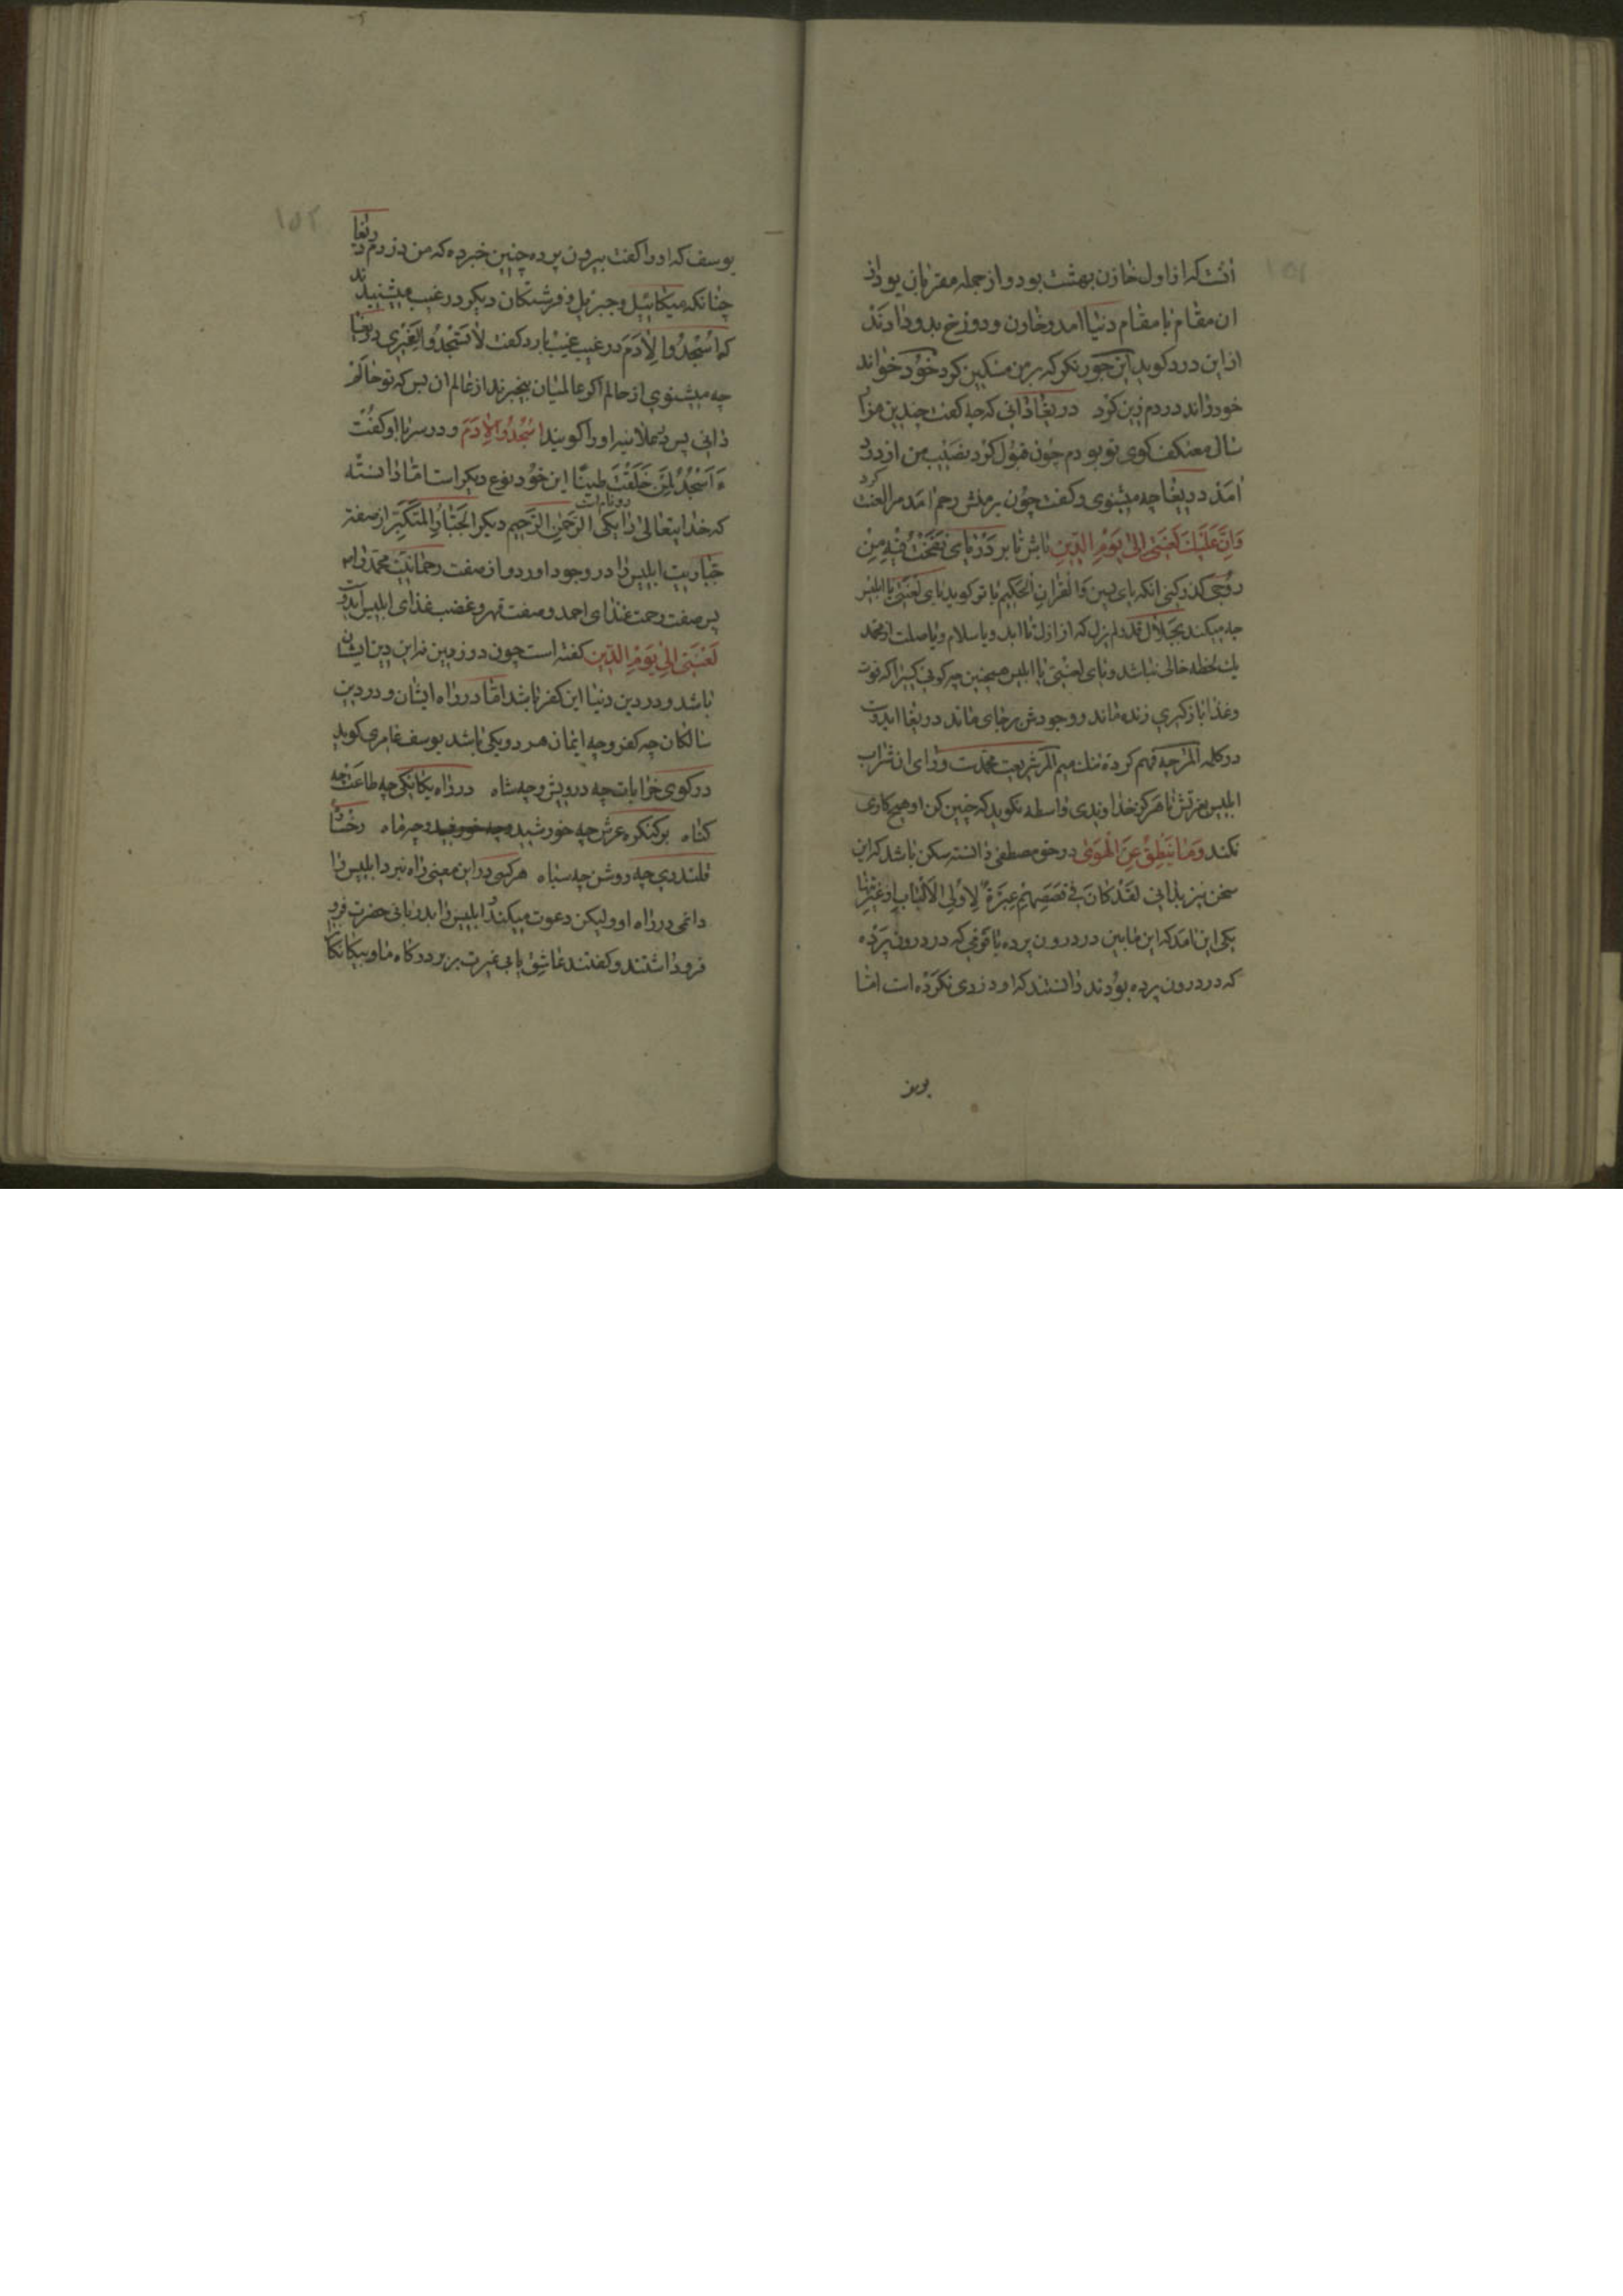 ۱۵۱
آنست که از اول خازن بهشت بود و از جمله مقربان بود از
ان مقام با مقام دنیا امد و خازن و دوزخ بدو دادند
از این درد کوید این جور نکر که بر من مسکین کرد خود خواند
خود راند دردم زین کرد دریغا دانی که چه کفت چندین هزار
سال معتکف کوی تو بودم چون قبول کرد نصیب من از درد
امد دریغا چه میشنوی و کفت چون بر منش رحم امد مرا لعنت کرد
وَاِنَّ عَلَیْكَ لَعْنَتی اِلی یَوْمِ الدّین باش تا بر در یای نَفَخْتُ فیهِ مِنْ
روحی کذر کنی انکه یای یسن وَالْقُرآنِ الْحَکیم با تو کوید یای لعنتی با ابلیس
چه میکند بجلال قدر لم یزل که از ازل تا ابد و یا سلام و یا صلت از محمد
یك لحظه خالی نباشد و یای لعنتی با ابلیس همچنین چه کوئی کسیرا که قوت
و غذا بازکیری زنده ماند و وجودش برجای ماند دریغا ابدوت
در کلمه المر چه فهم کرده
ابلیس هرکز خداوندی واسطه نکوید که چنین کن او هیچ کاری
نکند وَما یَنْطِقُ عَنِ الْهَوی در حق مصطفی دانسته باشد که این
سخن نیز بدانی لَقَدْ کانَ فی قَصَصِهِمْ عِبْرَةٌ لِاُولِی الْاَلْبابِ از عبرتها
یکی این امد که ابن یامین در درون پرده با قومی که در درون پرده
که در درون پرده بودند دانستند که او دزدی نکرده است اما
یوسف
۱۵۲
یوسف که او را کفت بیرون پرده چنین خبر ده که من دزدم دریغا
چنانکه میکائیل و جبرئیل و فرشتکان دیکر در غیب میشنیدند
که اُسْجُدُوا لِاٰدَمَ در غیب غیب با رد کفت لا تَسْجُدُوا لِغَیْری دریغا
چه میشنوی از حالم اکر عالمیان بیخبرند از عالم ان بس که تو حالم
دانی پس در علانیه او را کویند اُسْجُدُوا لِاٰدَمَ و در سر با او کفت
ءَاَسْجُدُ لِمَنْ خَلَقْتَ طینًا این خود نوع دیکر است اما دانسته
که خدایتعالی را دو نام است یکی الرحمن الرحیم دیکر الجبار المتکبر از صفت
جباریت ابلیس را در وجود اورد و از صفت رحمانیت محمد را
پس صفت رحمت غذای احمد و صفت قهر و غضب غذای ابلیس
لَعْنَتی اِلی یَوْمِ الدّین کفته است چون روز دین نه این دین ایشان
باشد و در دین دنیا این کفر باشد اما در راه ایشان و در دین
سالکان چه کفر و چه ایمان هر دو یکی باشد یوسف عامری کوید
در کوی خرابات چه درویش و چه شاه در راه یکانکی چه طاعت چه
کناه بر کنکره عرش چه خورشید و چه ماه رخسار
قلندری چه روشن چه سیاه هر کسی در این معنی راه نبرد ابلیس را
داعی در راه او ولیکن دعوت میکند ابلیس را بدربانی حضرت عزت
فرو داشتند و کفتند عاشق مایی غیرت بر درکاه ما و بیکانکا